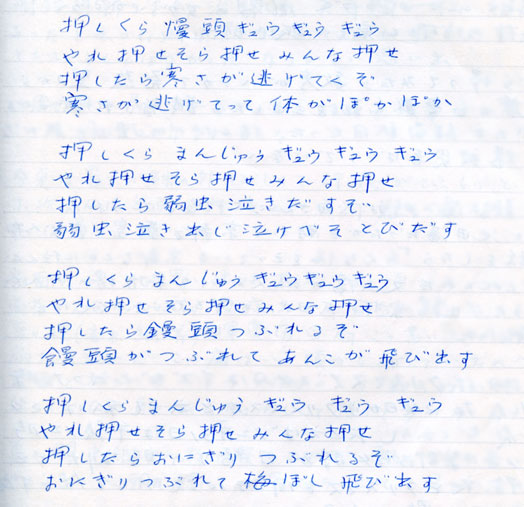 押しくら慢頭ギュウギュウギュウ
やれ押せそら押せみんな押せ
押したら寒さが逃げてくぞ
寒さが逃げてって体がぽかぽか
押しくらまんじゅうギュウギュウギュウ
やれ押せそら押せみんな押せ
押したら弱虫泣きだすぞ
弱虫泣き出し泣けべそとびだす
押しくらまんじゅうギュウギュウギュウ
やれ押せそら押せみんな押せ
押したら饅頭つぶれるぞ
饅頭がつぶれてあんこが飛び出す
押しくらまんじゅうギュウギュウギュウ
やれ押せそら押せみんな押せ
押したらおにぎりつぶれるぞ
おにぎりつぶれて梅ぼし飛び出す